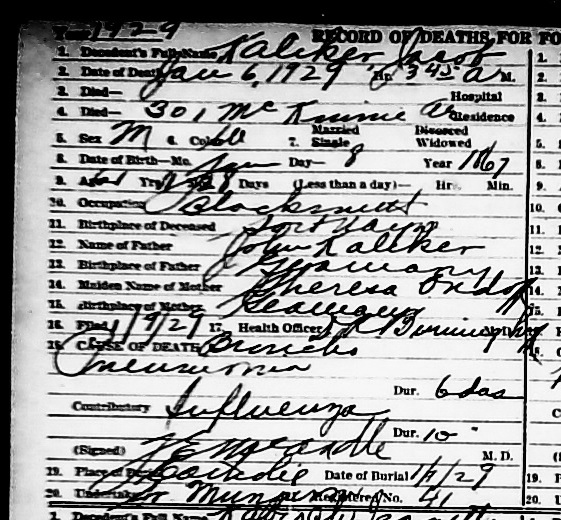 Year 1929 RECORD OF DEATHS FOR FO
1. Decedent's Full Name Kaliker Jacob
2. Date of Death Jan 6, 1929 Hr. 3 45 A M.
3. Died— Hospital
4. Died— 301 McKinnie Residence
5. Sex M 6. Color W 7. Married Single Divorced Widowed
8. Date of Birth—Mo. Jan Day— 8 Year 1867
9. Age 61 Yrs. 28 Days (Less than a day)— Hr. Min.
10. Occupation Blacksmith
11. Birthplace of Deceased Fort Wayne
12. Name of Father John Kaliker
13. Birthplace of Father Germany
14. Maiden Name of Mother Theresa
15. Birthplace of Mother Germany
16. Filed 1/9/29 17. Health Officer
18. CAUSE OF DEATH Broncho
Pneumonia
Dur. 6 das
Contributory Influenza
Dur. 10 "
(Signed) M. D.
19. Place of Burial Date of Burial 1/9/29
20. Undertaker Registered No. 41
1. Decedent's Full Name